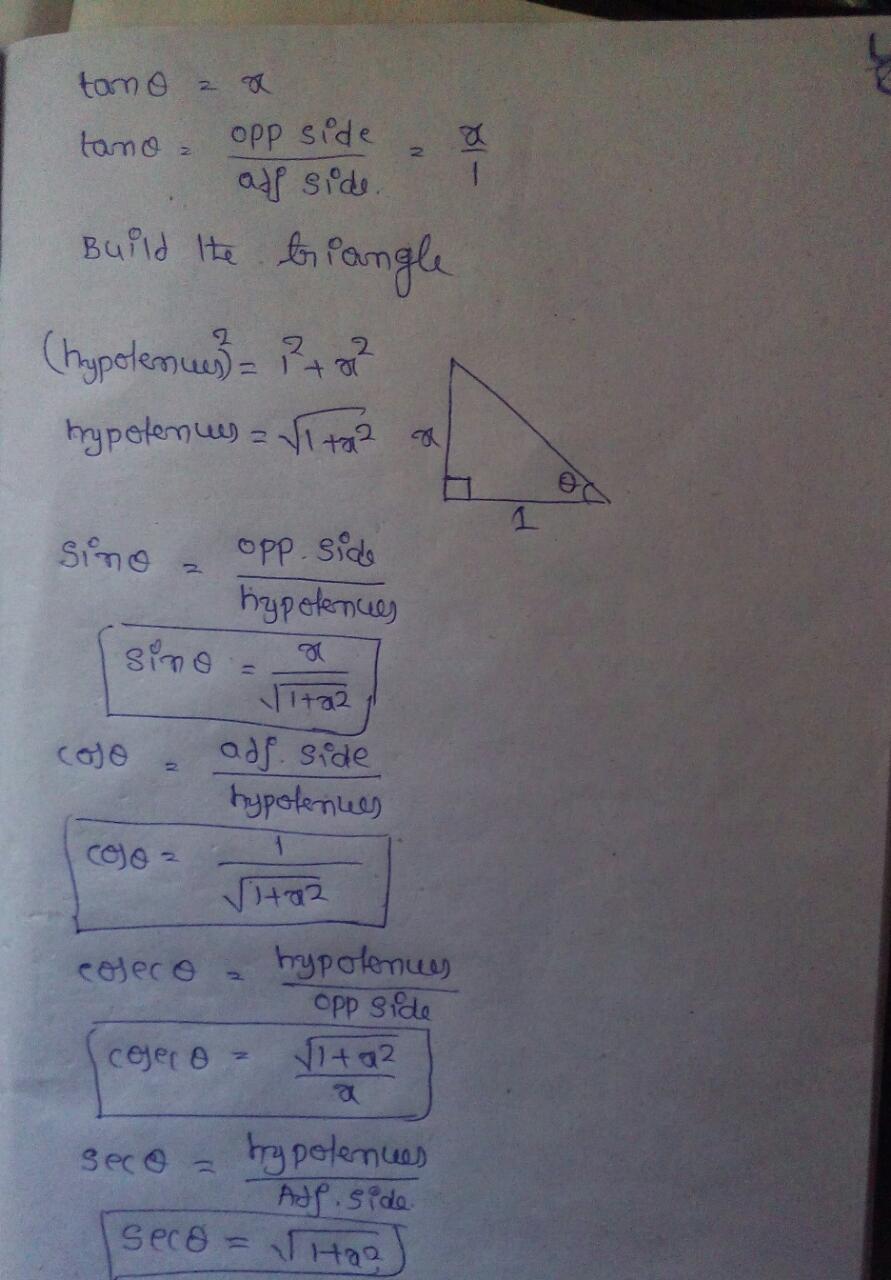 tanθ = x
tanθ = opp side / adj side. = x / 1
Build the triangle
(hypotenues)² = 1² + x²
hypotenues = √1+x²
x
θ
1
sinθ = opp. side / hypotenues
sinθ = x / √1+x²
cosθ = adj. side / hypotenues
cosθ = 1 / √1+x²
cosecθ = hypotenues / opp side
cosecθ = √1+x² / x
secθ = hypotenues / Adj. side.
secθ = √1+x²